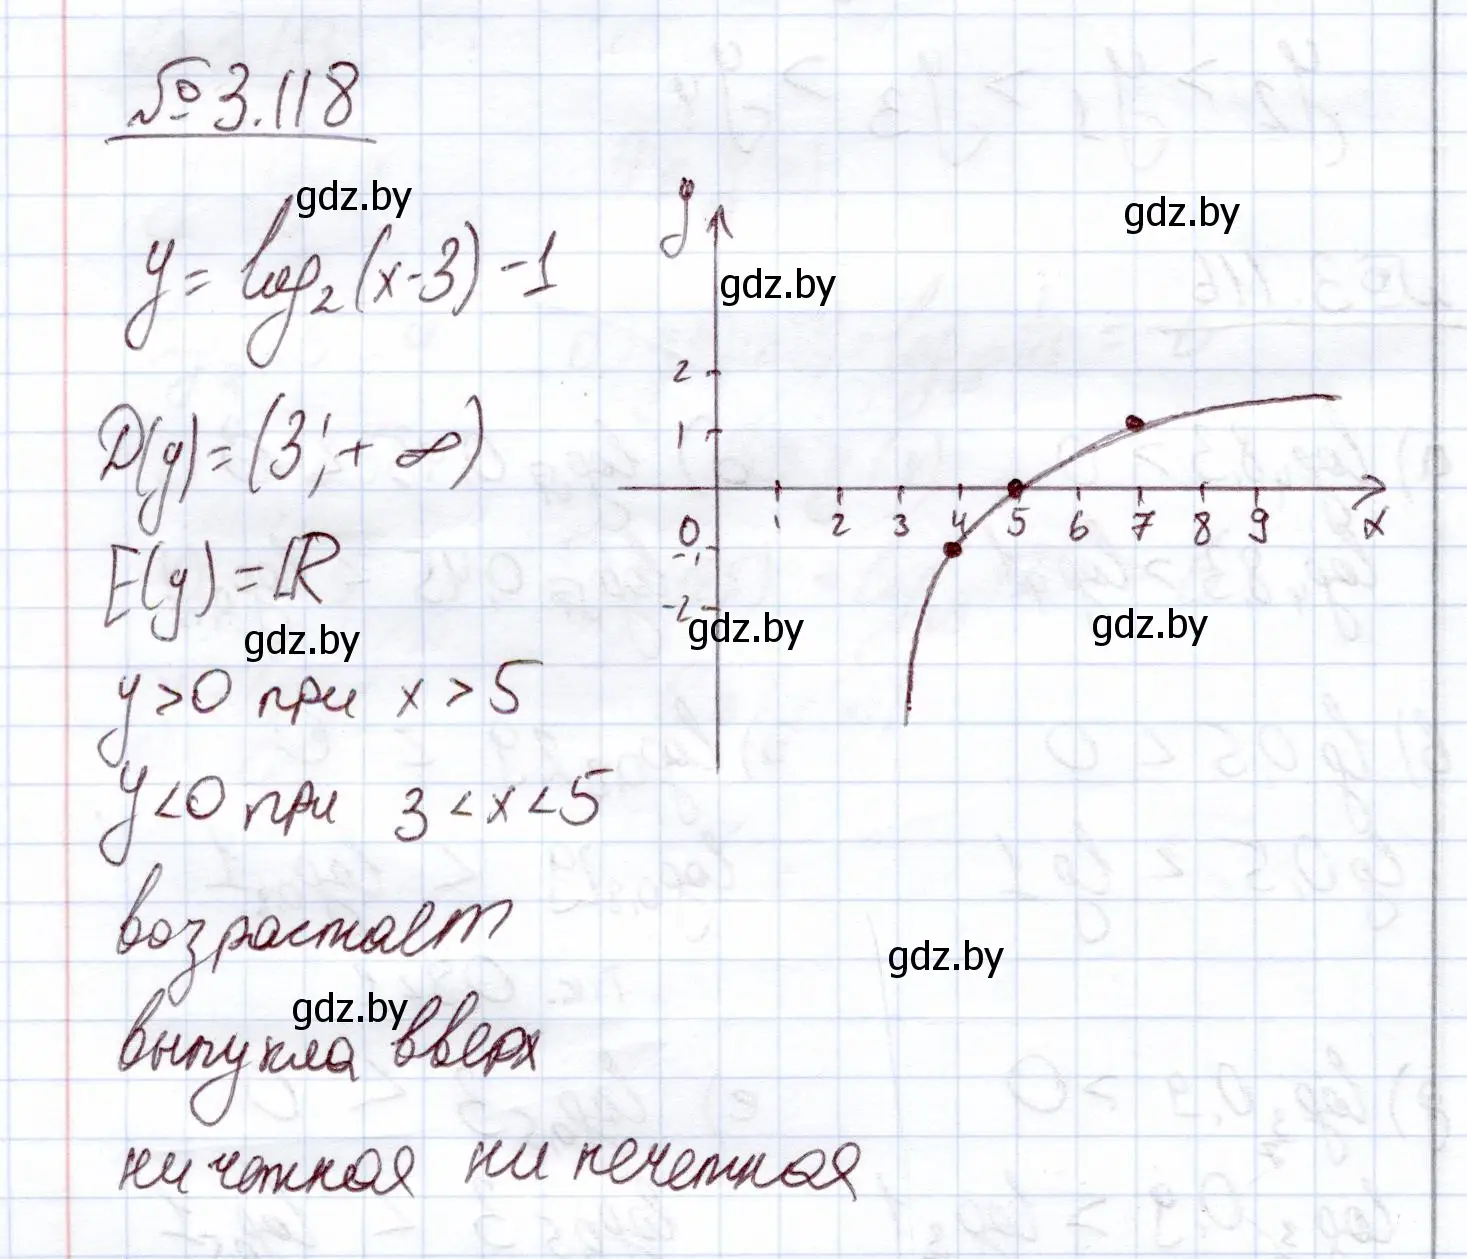 № 3.118
gdz.by
gdz.by
y = log₂(x-3) -1
gdz.by
y
2
1
0
1 2 3 4 5 6 7 8 9 x
-1
-2
D(y) = (3; + ∞)
E(y) = R
gdz.by
gdz.by
gdz.by
y > 0 при x > 5
y < 0 при 3 < x < 5
возрастает
gdz.by
gdz.by
выпукла вверх
ни четная ни нечетная